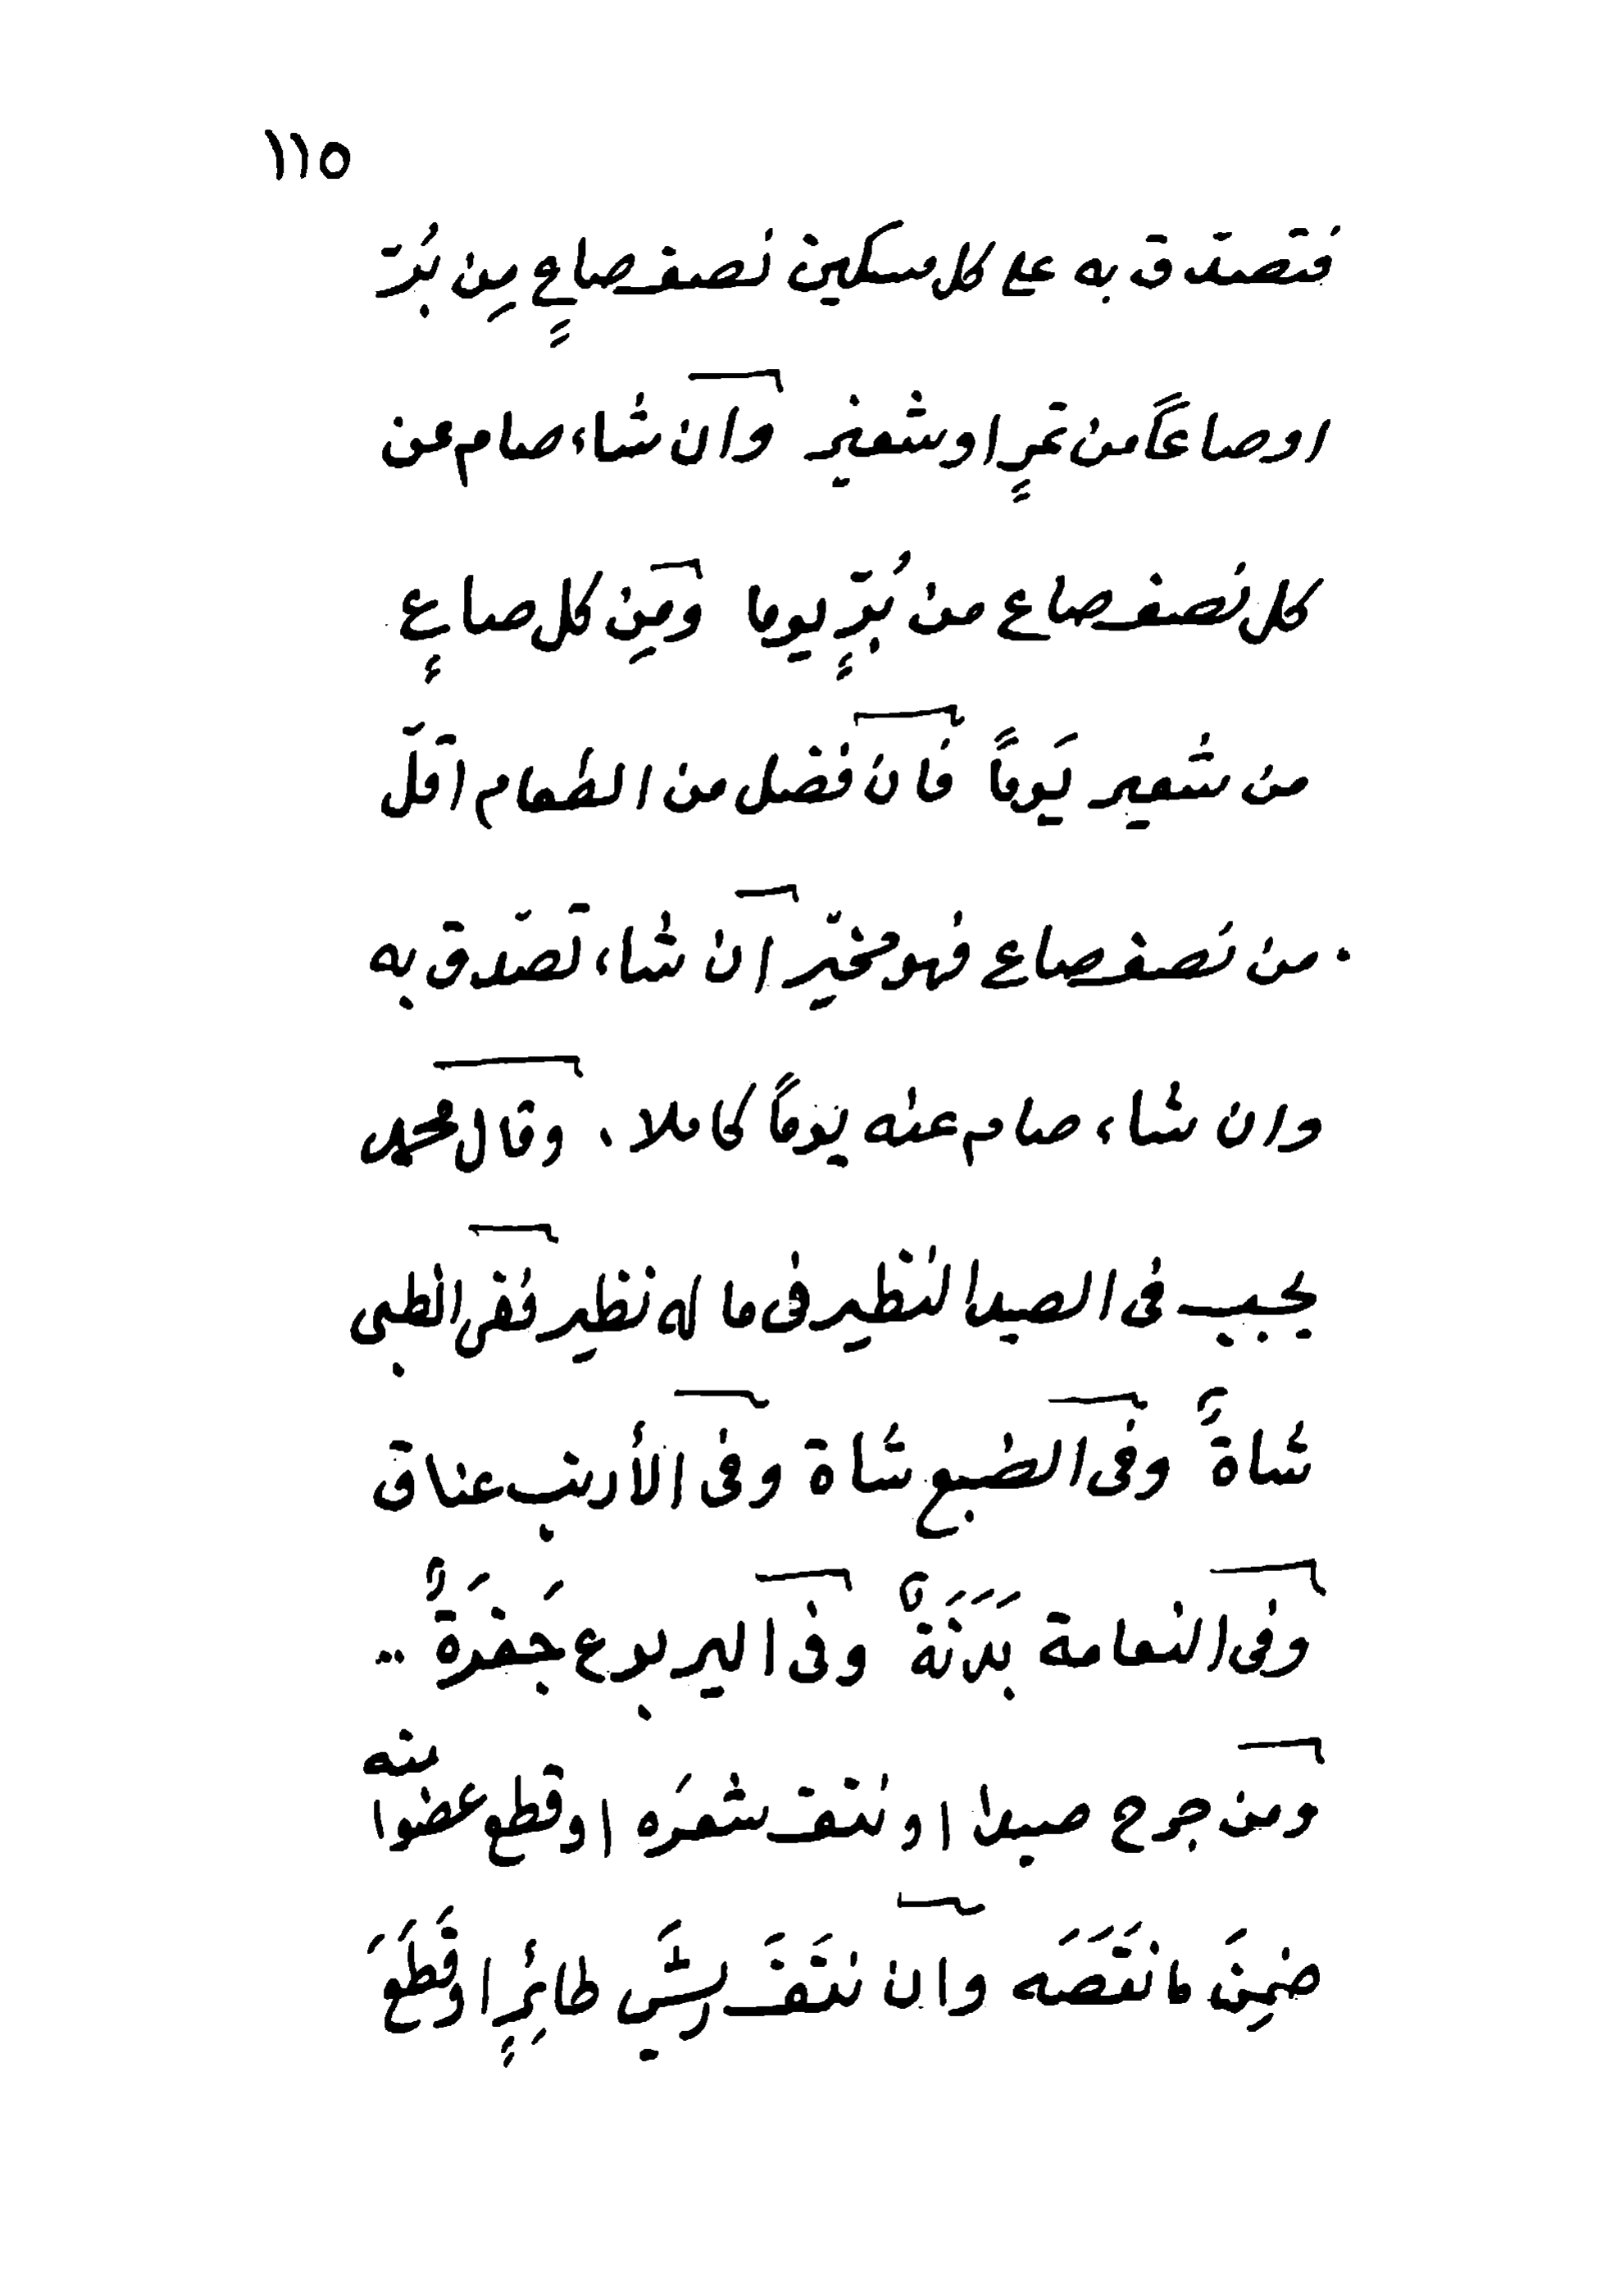 ١١٥
فتصدّق به على كل مسكين نصف صاعٍ مِن بُرّ
او صاعاً من تمرٍ او شعير وان شاء صام عن
كل نصف صاع من بُرٍّ يوما ومِن كل صاعٍ
من شعير يَوماً فان فضل من الطعام اقلّ
من نصف صاع فهو مخيّر ان شاء تصَدّق به
وان شاء صام عنه يوماً كاملا . وقال محمد
يجب فى الصيد النظير فى ما له نظير ففى الظبى
شاةً وفى الضبع شاة وفى الأرنب عناق
وفى النعامة بَدَنَةٌ وفى اليربوع جَفرَةٌ ..
ومن جرح صيدا او نتف شعرَه او قطع عضوا منه
ضمِنَ ما نقَصَه وان نتَفَ ريشَ طائِرٍ او قَطَعَ